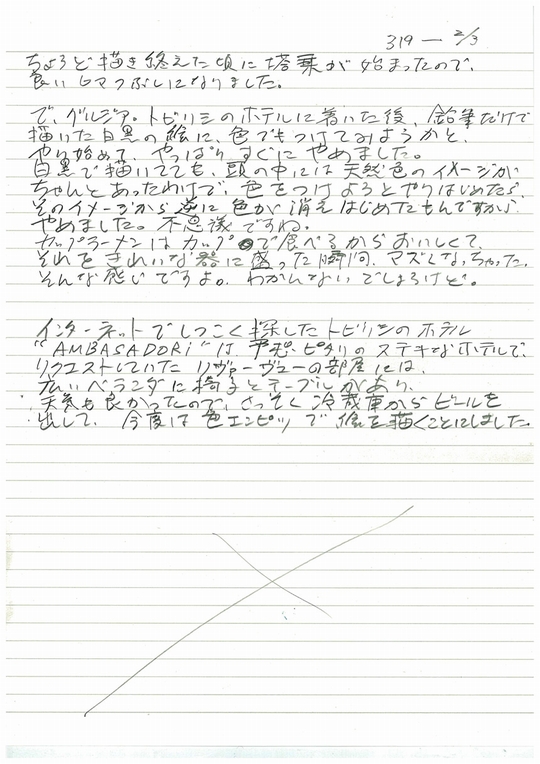 319 — 2/3
ちょうど描き終えた頃に搭乗が始まったので、
良いヒマつぶしになりました。
で、グルジア・トビリシのホテルに着いた後、鉛筆だけで
描いた白黒の絵に、色でもつけてみようかと、
やり始めて、やっぱりすぐにやめました。
白黒で描いてても、頭の中には天然色のイメージが
ちゃんとあったわけで、色をつけようとやりはじめたら、
そのイメージから逆に色が消えはじめたもんですから
やめました。不思議ですね。
カップラーメンはカップで食べるからおいしくて、
それをきれいな器に盛った瞬間、マズくなっちゃった。
そんな感じですよ。わかんないでしょうけど。
インターネットでしつこく探したトビリシのホテル
"AMBASADORi"は、予想ピタリのステキなホテルで、
リクエストしていたリヴァーヴューの部屋には、
広いベランダに椅子とテーブルがあり、
天気も良かったので、さっそく冷蔵庫からビールを
出して、今度は色エンピツで絵を描くことにしました。